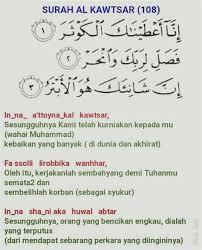 SURAH AL KAWTSAR (108)
إِنَّا أَعْطَيْنَاكَ الْكَوْثَرَ ١
فَصَلِّ لِرَبِّكَ وَانْحَرْ ٢
إِنَّ شَانِئَكَ هُوَ الْأَبْتَرُ ٣
In_na_ a'ttoyna_kal kawtsar,
Sesungguhnya Kami telah kurniakan kepada mu
(wahai Muhammad)
kebaikan yang banyak ( di dunia dan akhirat)
Fa ssolli lirobbika wanhhar,
Oleh itu, kerjakanlah sembahyang demi Tuhanmu
semata2 dan
sembelihlah korban (sebagai syukur)
In_na sha_ni aka huwal abtar
Sesungguhnya, orang yang bencikan engkau, dialah
yang terputus
(dari mendapat sebarang perkara yang diingininya)